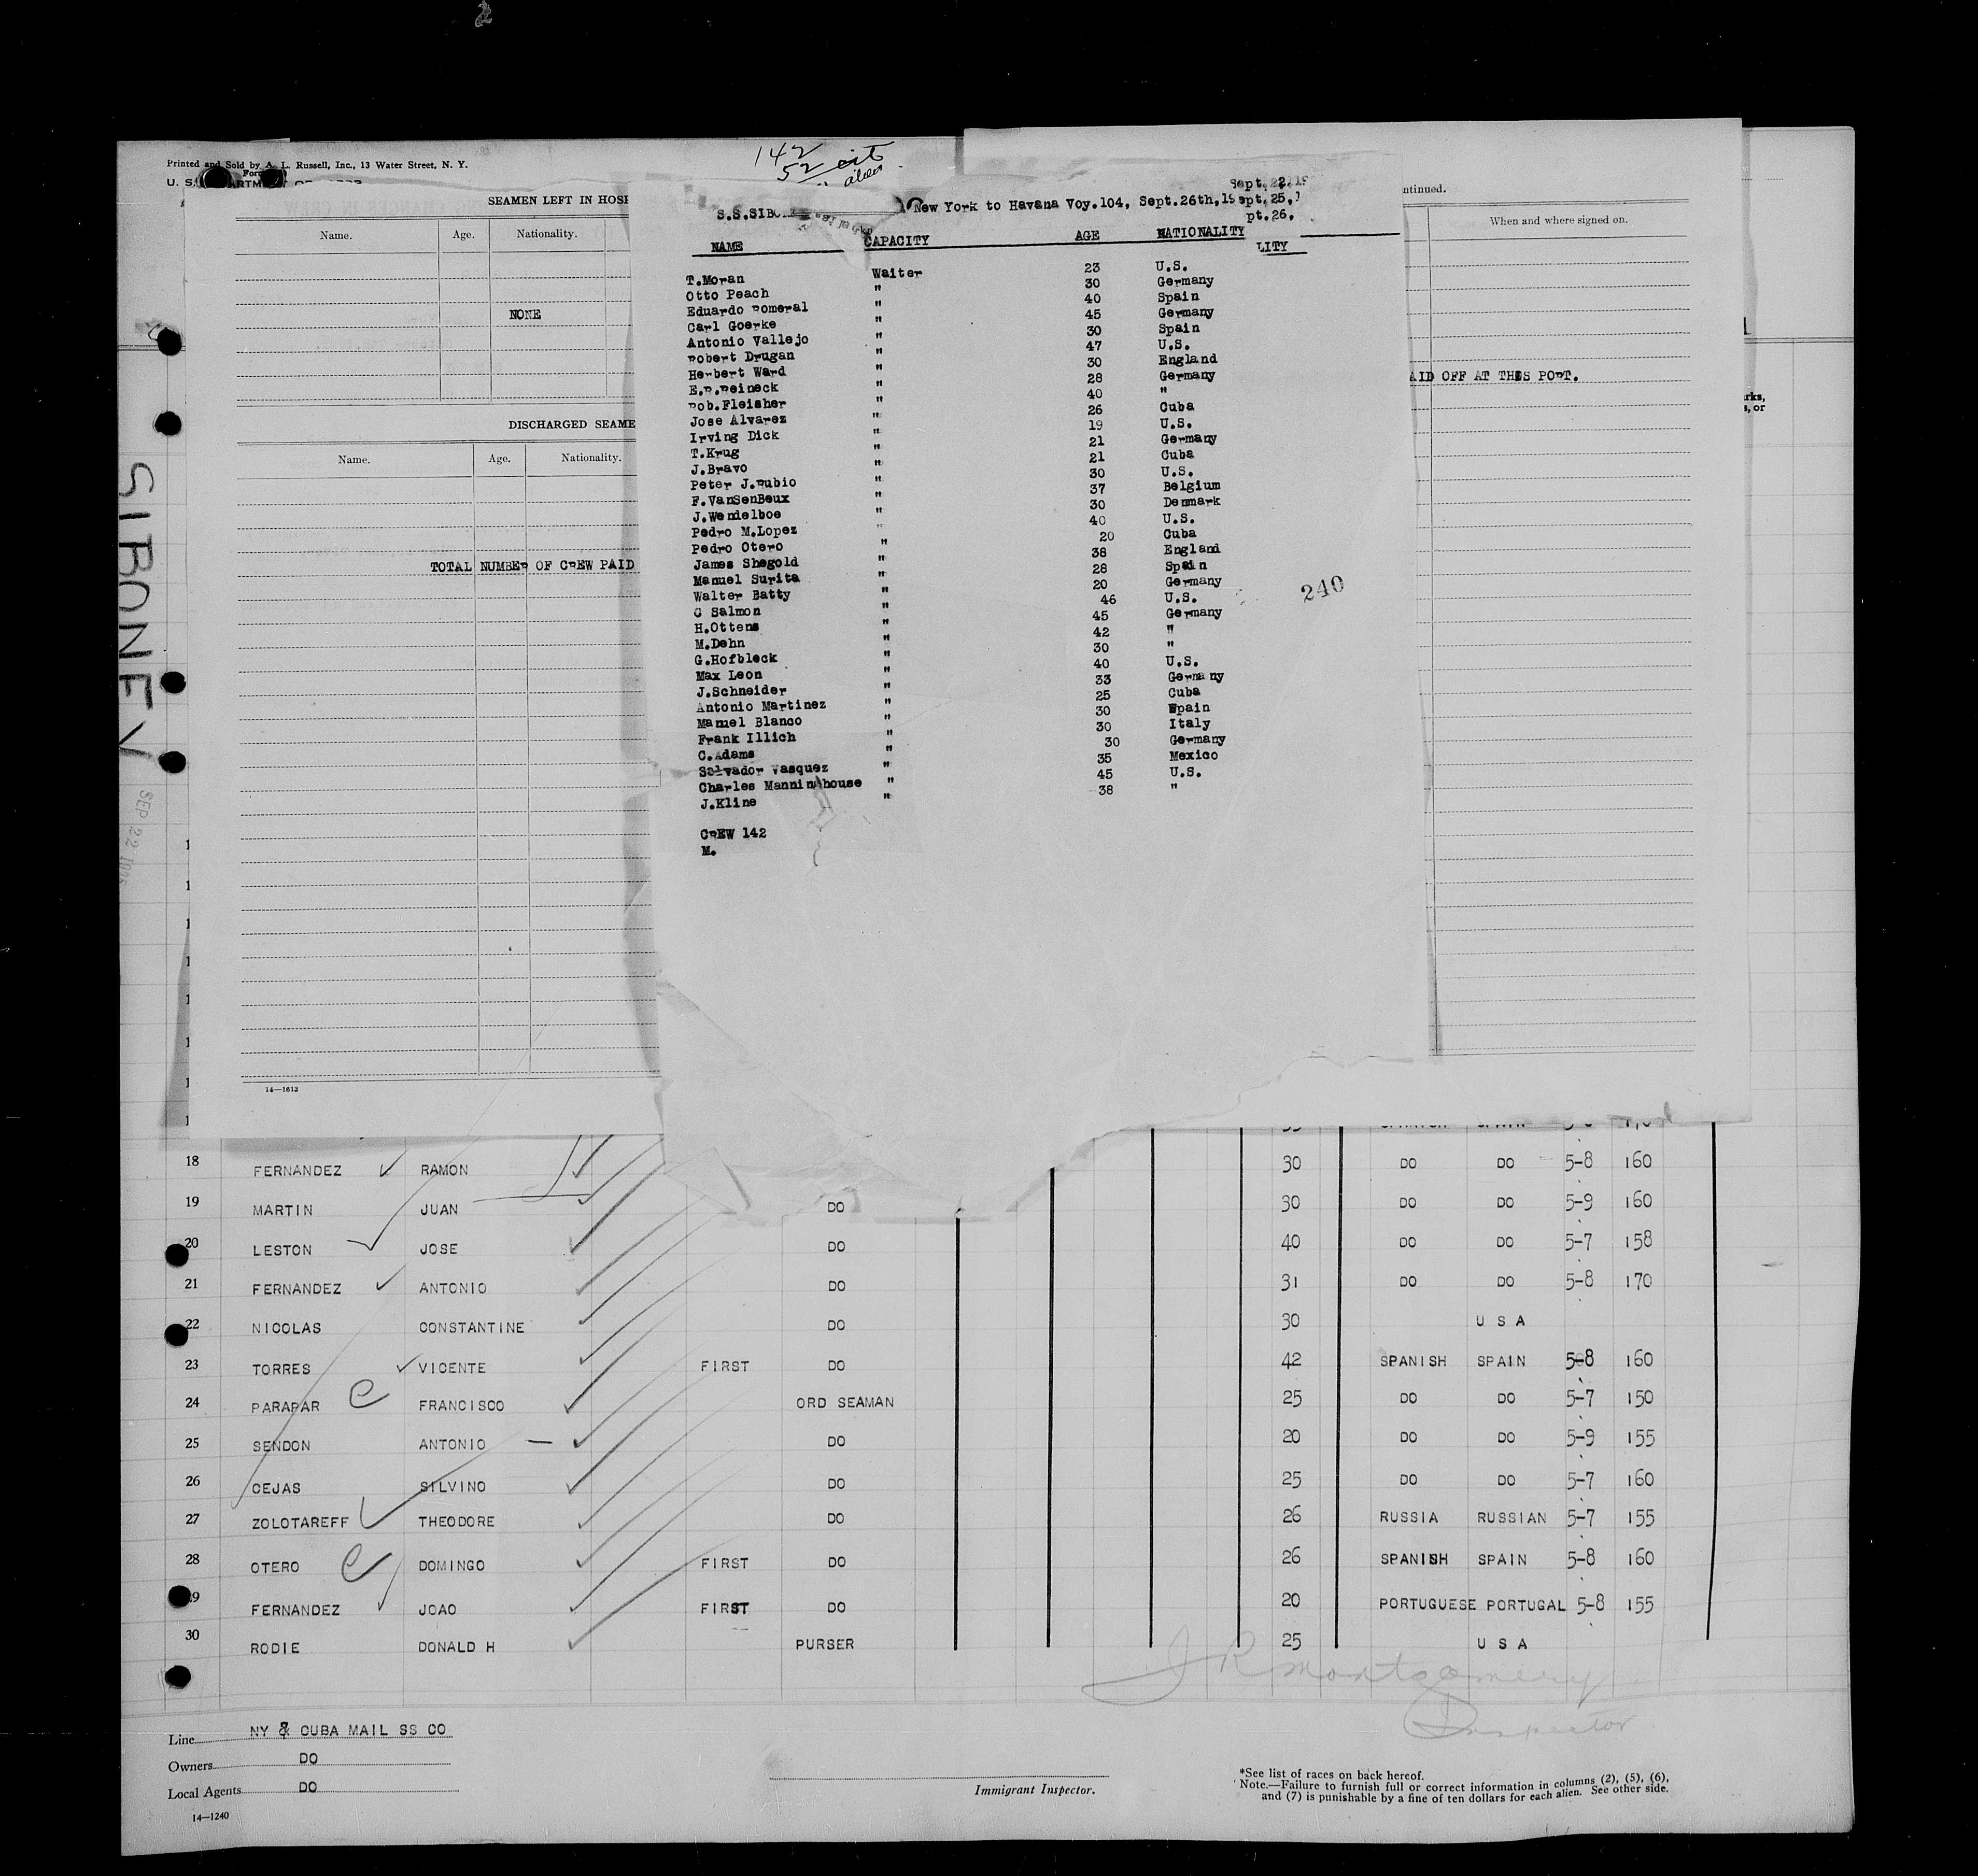 Printed and Sold by A. L. Russell, Inc., 13 Water Street, N. Y.
U. S.
142
52 cit
alien
SEAMEN LEFT IN HOSP
Name. Age. Nationality.
NONE
DISCHARGED SEAME
Name. Age. Nationality.
TOTAL NUMBER OF CREW PAID
14—1613
SIBONEY
SEP 22
S.S.SIBO New York to Havana Voy.104, Sept.26th,19
Sept.22,19
pt.25,1
pt.26,
NAME CAPACITY AGE NATIONALITY
LITY
T.Moran Waiter 23 U.S.
Otto Peach " 30 Germany
Eduardo Romeral " 40 Spain
Carl Goerke " 45 Germany
Antonio Vallejo " 30 Spain
Robert Drugan " 47 U.S.
Herbert Ward " 30 England
E.R.Reineck " 28 Germany
Rob.Fleisher " 40 "
Jose Alvarez " 26 Cuba
Irving Dick " 19 U.S.
T.Krug " 21 Germany
J.Bravo " 21 Cuba
Peter J.Rubio " 30 U.S.
F.VanSenBeux " 37 Belgium
J.Wendelboe " 30 Denmark
Pedro M.Lopez " 40 U.S.
Pedro Otero " 20 Cuba
James Shegold " 38 England
Manuel Surita " 28 Spain
Walter Batty " 20 Germany
C Salmon " 46 U.S.
H.Ottens " 45 Germany
M.Dehn " 42 "
G.Hofbleck " 30 "
Max Leon " 40 U.S.
J.Schneider " 33 Germany
Antonio Martinez " 25 Cuba
Manuel Blanco " 30 Spain
Frank Illich " 30 Italy
C.Adams " 30 Germany
Salvador Vasquez " 35 Mexico
Charles Manninghouse " 45 U.S.
J.Kline " 38 "
CREW 142
M.
240
ntinued.
When and where signed on.
AID OFF AT THIS PORT.
rks,
s, or
18 FERNANDEZ RAMON 30 DO DO 5-8 160
19 MARTIN JUAN DO 30 DO DO 5-9 160
20 LESTON JOSE DO 40 DO DO 5-7 158
21 FERNANDEZ ANTONIO DO 31 DO DO 5-8 170
22 NICOLAS CONSTANTINE DO 30 U S A
23 TORRES VICENTE FIRST DO 42 SPANISH SPAIN 5-8 160
24 PARAPAR e FRANCISCO ORD SEAMAN 25 DO DO 5-7 150
25 SENDON ANTONIO DO 20 DO DO 5-9 155
26 CEJAS SILVINO DO 25 DO DO 5-7 160
27 ZOLOTAREFF THEODORE DO 26 RUSSIA RUSSIAN 5-7 155
28 OTERO e DOMINGO FIRST DO 26 SPANISH SPAIN 5-8 160
29 FERNANDEZ JOAO FIRST DO 20 PORTUGUESE PORTUGAL 5-8 155
30 RODIE DONALD H PURSER 25 U S A
J R Montgomery
Inspector
Line NY & CUBA MAIL SS CO
Owners DO
Local Agents DO
14—1240
Immigrant Inspector.
*See list of races on back hereof.
Note.—Failure to furnish full or correct information in columns (2), (5), (6),
and (7) is punishable by a fine of ten dollars for each alien. See other side.